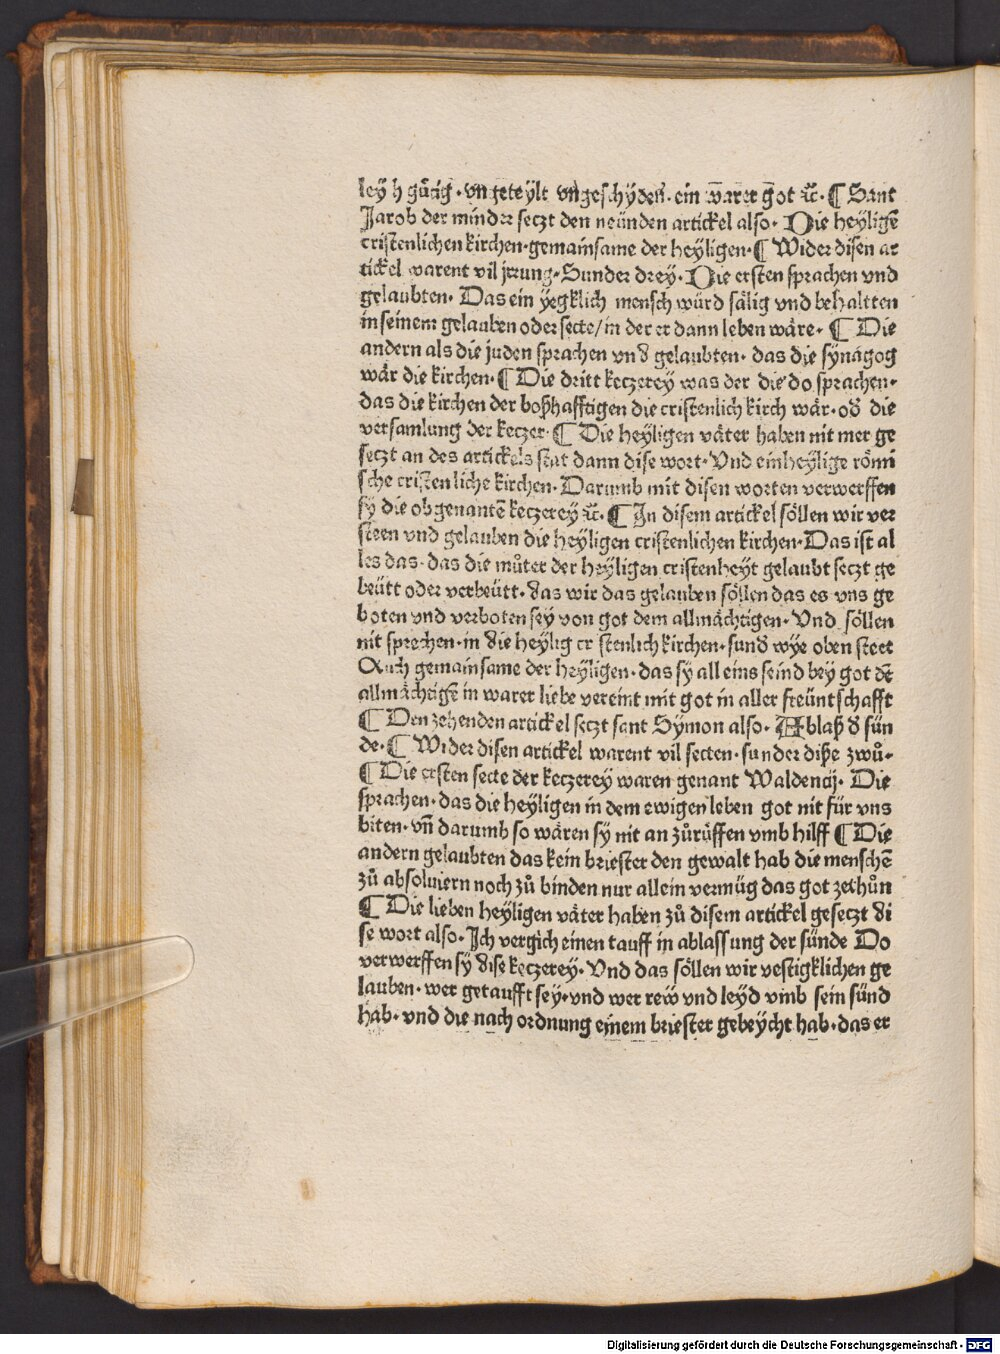 leÿ h gütig · vn geteÿlt vngeschÿden̄ · ein warer got ꝛc̄. ¶ Sant
Jacob der minder seczt den neünden artickel also · Die heÿligē
cristenlichen kirchen · gemainsame der heÿligen · ¶ Wider disen ar
tickel warent vil jrrung · Sunder dreÿ · Die ersten sprachen vnd
gelaubten · Das ein ÿegklich mensch würd sälig vnd behaltten
in seinem gelauben oder secte / in der er dann leben wäre · ¶ Die
andern als die juden sprachen vnd gelaubten · das die sÿnagog
wär die kirchen · ¶ Die dritt keczereÿ was der die do sprachen ·
das die kirchen der boßhafftigen die cristenlich kirch wär · od̄ die
versamlung der keczer · ¶ Die heÿligen väter haben nit mer ge
seczt an des artickels stat dann dise wort · Vnd ein heÿlige römi
sche cristenliche kirchen · Darumb mit disen worten verwerffen
sÿ die obgenantē keczereÿ ꝛc̄. ¶ In disem artickel söllen wir ver
steen vnd gelauben die heÿligen cristenlichen kirchen · Das ist al
les das · das die můter der heÿligen cristenheÿt gelaubt seczt ge
beütt oder verbeütt · das wir das gelauben söllen das es vns ge
boten vnd verboten seÿ von got dem allmächtigen · Vnd söllen
nit sprechen · in die heÿlig cristenlich kirchen · sund̄ wÿe oben steet
Auch gemainsame der heÿligen · das sÿ all eins seind beÿ got dē
allmächtigē in warer liebe vereint mit got in aller freüntschafft
¶ Den zehenden artickel seczt sant Sÿmon also · Ablaß d̄ sün
de · ¶ Wider disen artickel warent vil secten · sunder diße zwů ·
¶ Die ersten secte der keczereÿ waren genant Waldencij · Die
sprachen · das die heÿligen in dem ewigen leben got nit für vns
biten · vn̄ darumb so wären sÿ nit an zůrüffen vmb hilff ¶ Die
andern gelaubten das kein briester den gewalt hab die menschē
zů absoluiern noch zů binden nur allein vermüg das got zethůn
¶ Die lieben heÿligen väter haben zů disem artickel geseczt di
se wort also · Ich vergich einen tauff in ablassung der sünde Do
verwerffen sÿ dise keczereÿ · Vnd das söllen wir vestigklichen ge
lauben · wer getaufft seÿ · vnd wer reẅ vnd leÿd vmb sein sünd
hab · vnd die nach ordnung einem briester gebeÿcht hab · das er
Digitalisierung gefördert durch die Deutsche Forschungsgemeinschaft - DFG